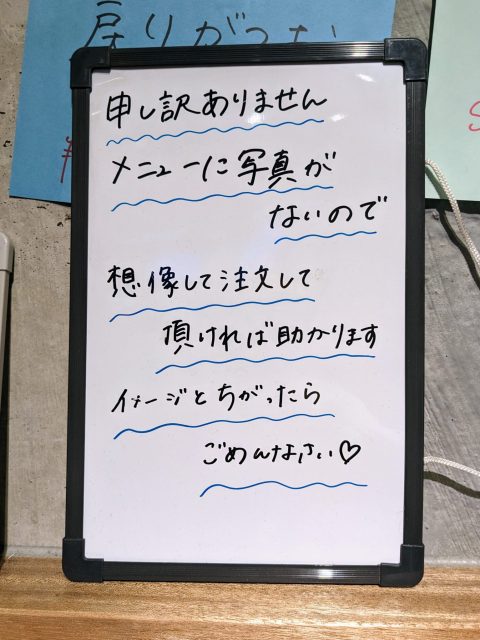 戻りがつお
申し訳ありません
メニューに写真が
ないので
想像して注文して
頂ければ助かります
イメージとちがったら
ごめんなさい♡